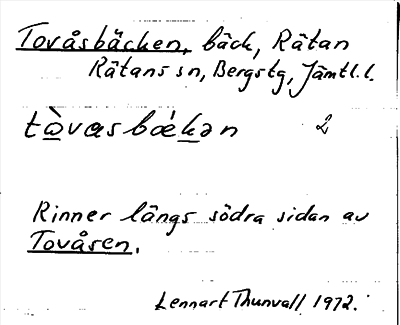 Tovåsbäcken, bäck, Rätan
Rätans sn, Bergstg, Jämtl. l.
tὰvɑsbǽkən 2
Rinner längs södra sidan av
Tovåsen.
Lennart Thunvall 1972.